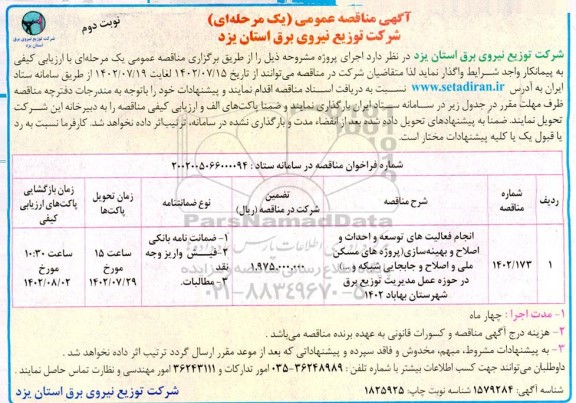 آگهی مناقصه عمومی (یک مرحله‌ای)
شرکت توزیع نیروی برق استان یزد
نوبت دوم
شرکت توزیع نیروی برق
استان یزد
شرکت توزیع نیروی برق استان یزد در نظر دارد اجرای پروژه مشروحه ذیل را از طریق برگزاری مناقصه عمومی یک مرحله‌ای با ارزیابی کیفی
به پیمانکار واجد شرایط واگذار نماید لذا متقاضیان شرکت در مناقصه می‌توانند از تاریخ ۱۴۰۲/۰۷/۱۵ لغایت ۱۴۰۲/۰۷/۱۹ از طریق سامانه ستاد
ایران به آدرس www.setadiran.ir نسبت به دریافت اسناد مناقصه اقدام نمایند و پیشنهادات خود را باتوجه به مندرجات دفترچه مناقصه
ظرف مهلت مقرر در جدول زیر در سامانه ستاد ایران بارگذاری نمایند و ضمنا پاکت‌های الف و ارزیابی کیفی مناقصه را به دبیرخانه این شرکت
تحویل نمایند. ضمنا به پیشنهادهای تحویل داده شده بعد از انقضاء مدت و بارگذاری نشده در سامانه، ترتیب‌اثر داده نخواهد شد. کارفرما نسبت به رد
یا قبول یک یا کلیه پیشنهادات مختار است.
شماره فراخوان مناقصه در سامانه ستاد : ۲۰۰۲۰۰۵۰۶۶۰۰۰۰۹۴
ردیف
شماره مناقصه
شرح مناقصه
تضمین شرکت در مناقصه (ریال)
نوع ضمانتنامه
زمان تحویل پاکت‌ها
زمان بازگشایی پاکت‌های ارزیابی کیفی
۱
۱۴۰۲/۱۷۳
انجام فعالیت های توسعه و احداث و
اصلاح و بهینه‌سازی(پروژه های مسکن
ملی و اصلاح و جابجایی شبکه و ...)
در حوزه عمل مدیریت توزیع برق
شهرستان بهاباد ۱۴۰۲
۱.۹۷۵.۰۰۰.۰۰۰
۱- ضمانت نامه بانکی
۲- فیش واریز وجه
نقد
۳- مطالبات.
ساعت ۱۵
مورخ
۱۴۰۲/۰۷/۲۹
ساعت ۱۰:۳۰
مورخ
۱۴۰۲/۰۸/۰۲
ParsNamadData
۰۲۱-۸۸۳۴۹۶۷۰-۵
۱- مدت اجرا : چهار ماه
۲- هزینه درج آگهی مناقصه و کسورات قانونی به عهده برنده مناقصه می‌باشد .
۳- به پیشنهادات مشروط، مبهم، مخدوش و فاقد سپرده و پیشنهاداتی که بعد از موعد مقرر ارسال گردد ترتیب اثر داده نخواهد شد .
داوطلبان می‌توانند جهت کسب اطلاعات بیشتر با شماره تلفن : ۳۶۲۴۸۹۸۹-۰۳۵ امور تدارکات و ۳۶۲۴۳۱۱۱ امور مهندسی و نظارت تماس حاصل نمایند .
شناسه آگهی: ۱۵۷۹۲۸۴ شناسه نوبت چاپ: ۱۸۲۵۹۲۵
شرکت توزیع نیروی برق استان یزد